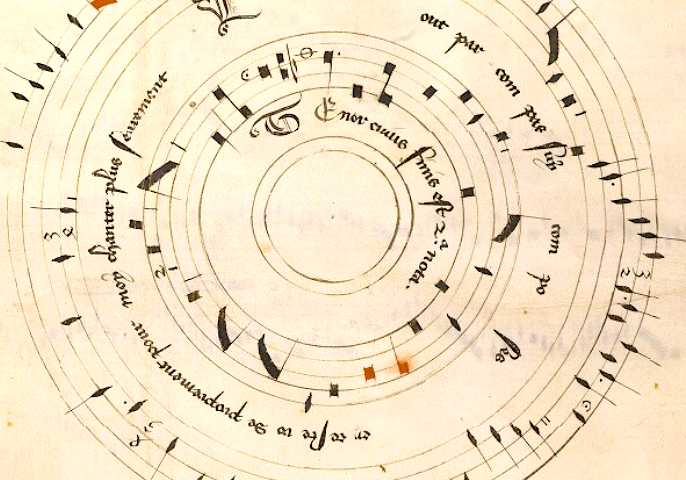 Tout par com pas suy com po ses
en ceste ro de proprement pour moy chanter plus seurement
TEnor cuius finis est 2a nota.